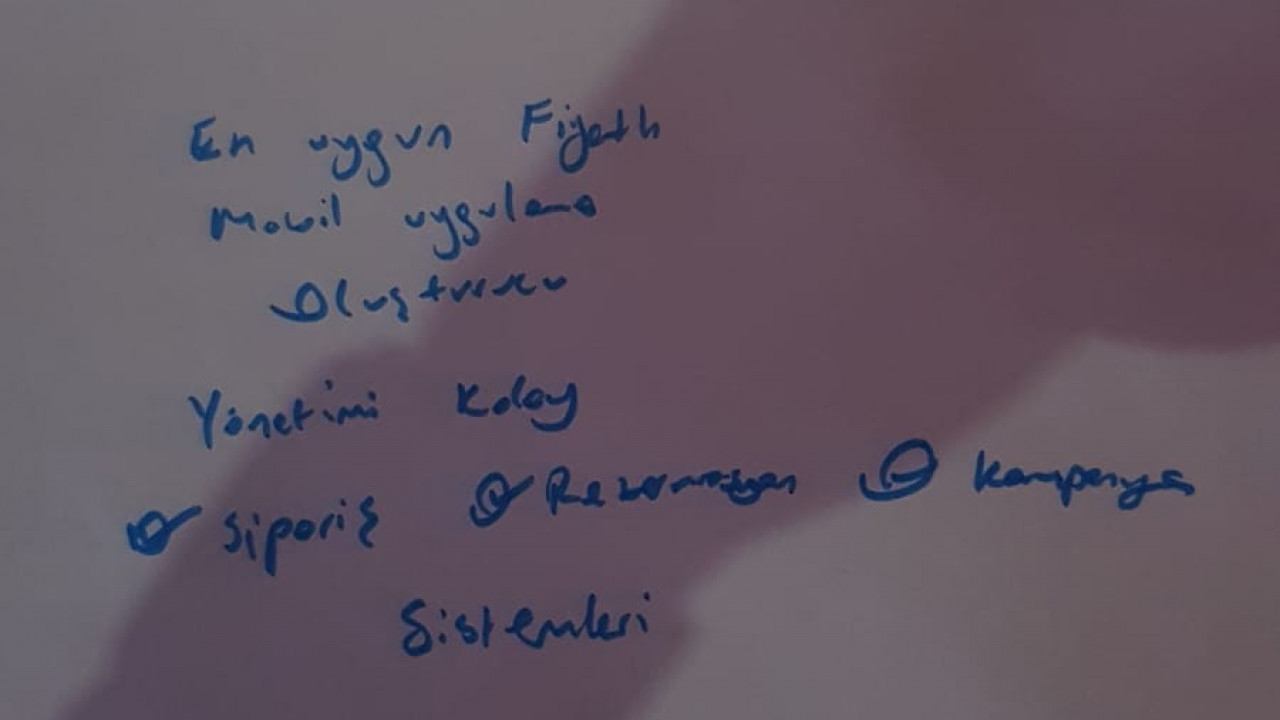 En uygun Fiyatlı
Mobil uygulama
Oluşturucu
Yönetimi Kolay
Sipariş Rezervasyon Kampanya
Sistemleri